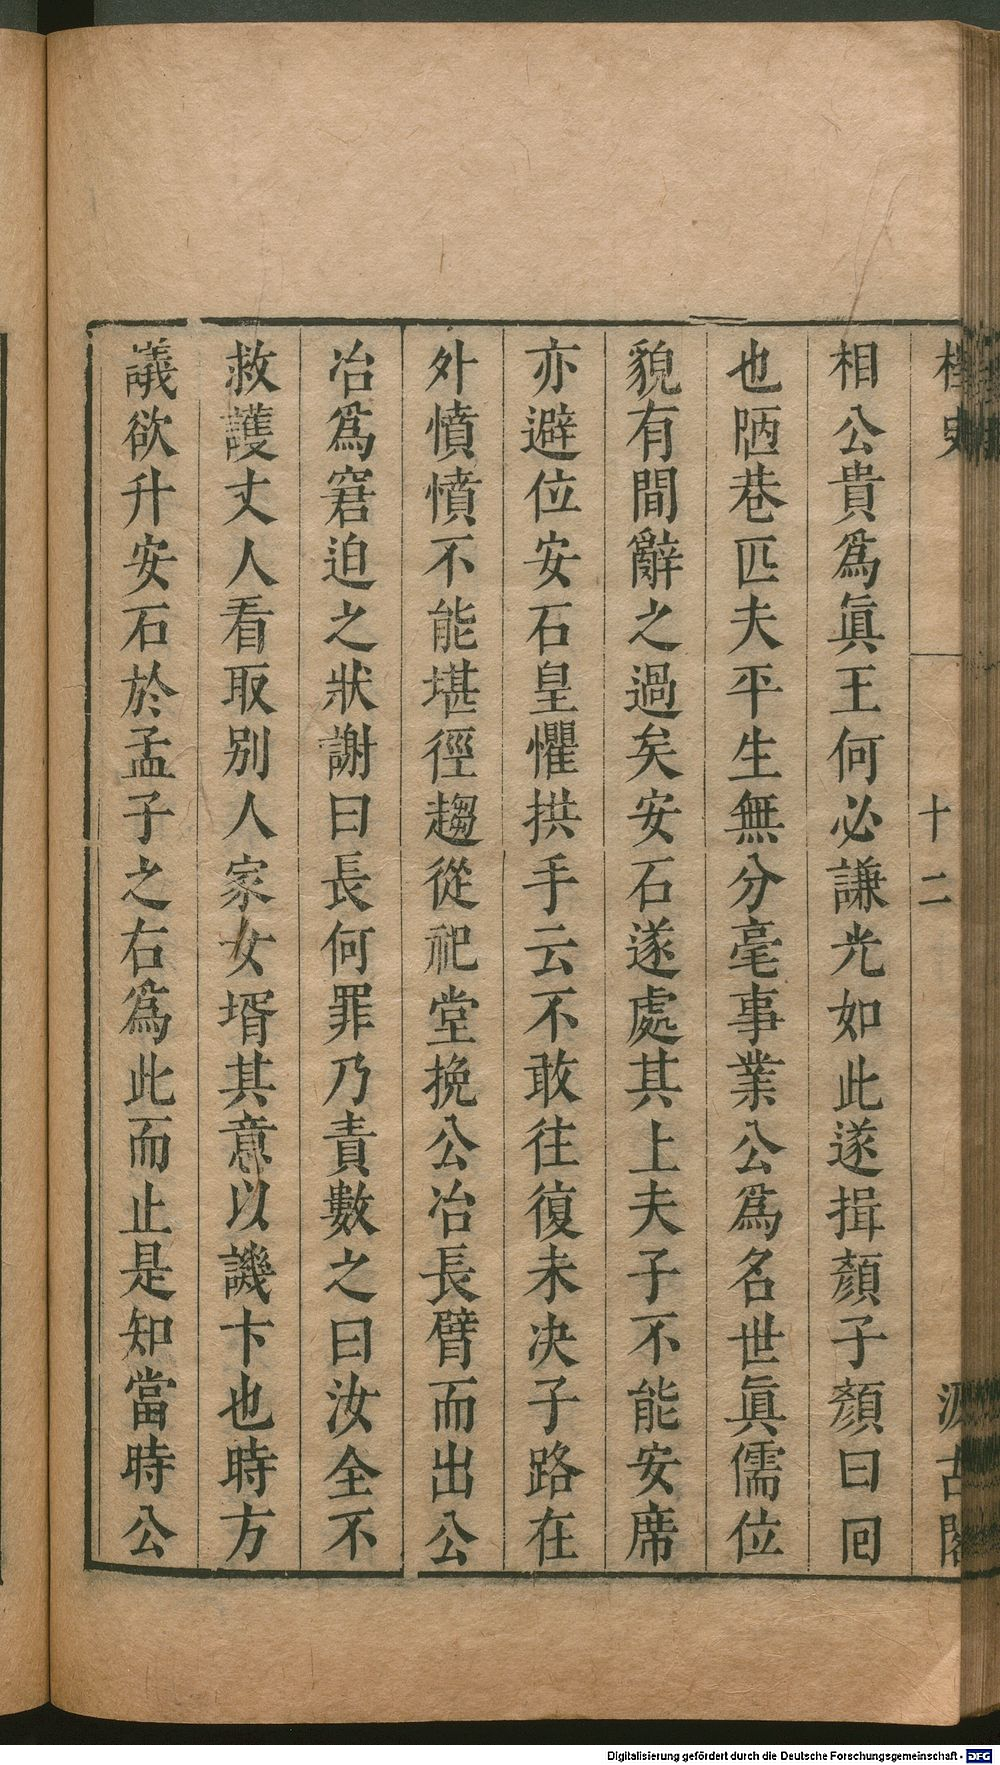 桯史
十二
汲古閣
相公貴爲眞王何必謙光如此遂揖顏子顏曰囘
也陋巷匹夫平生無分毫事業公爲名世眞儒位
貌有間辭之過矣安石遂處其上夫子不能安席
亦避位安石皇懼拱手云不敢往復未决子路在
外憤憤不能堪徑趨從祀堂挽公冶長臂而出公
冶爲窘迫之狀謝曰長何罪乃責數之曰汝全不
救護丈人看取别人家女壻其意以譏卞也時方
議欲升安石於孟子之右爲此而止是知當時公
Digitalisierung gefördert durch die Deutsche Forschungsgemeinschaft - DFG